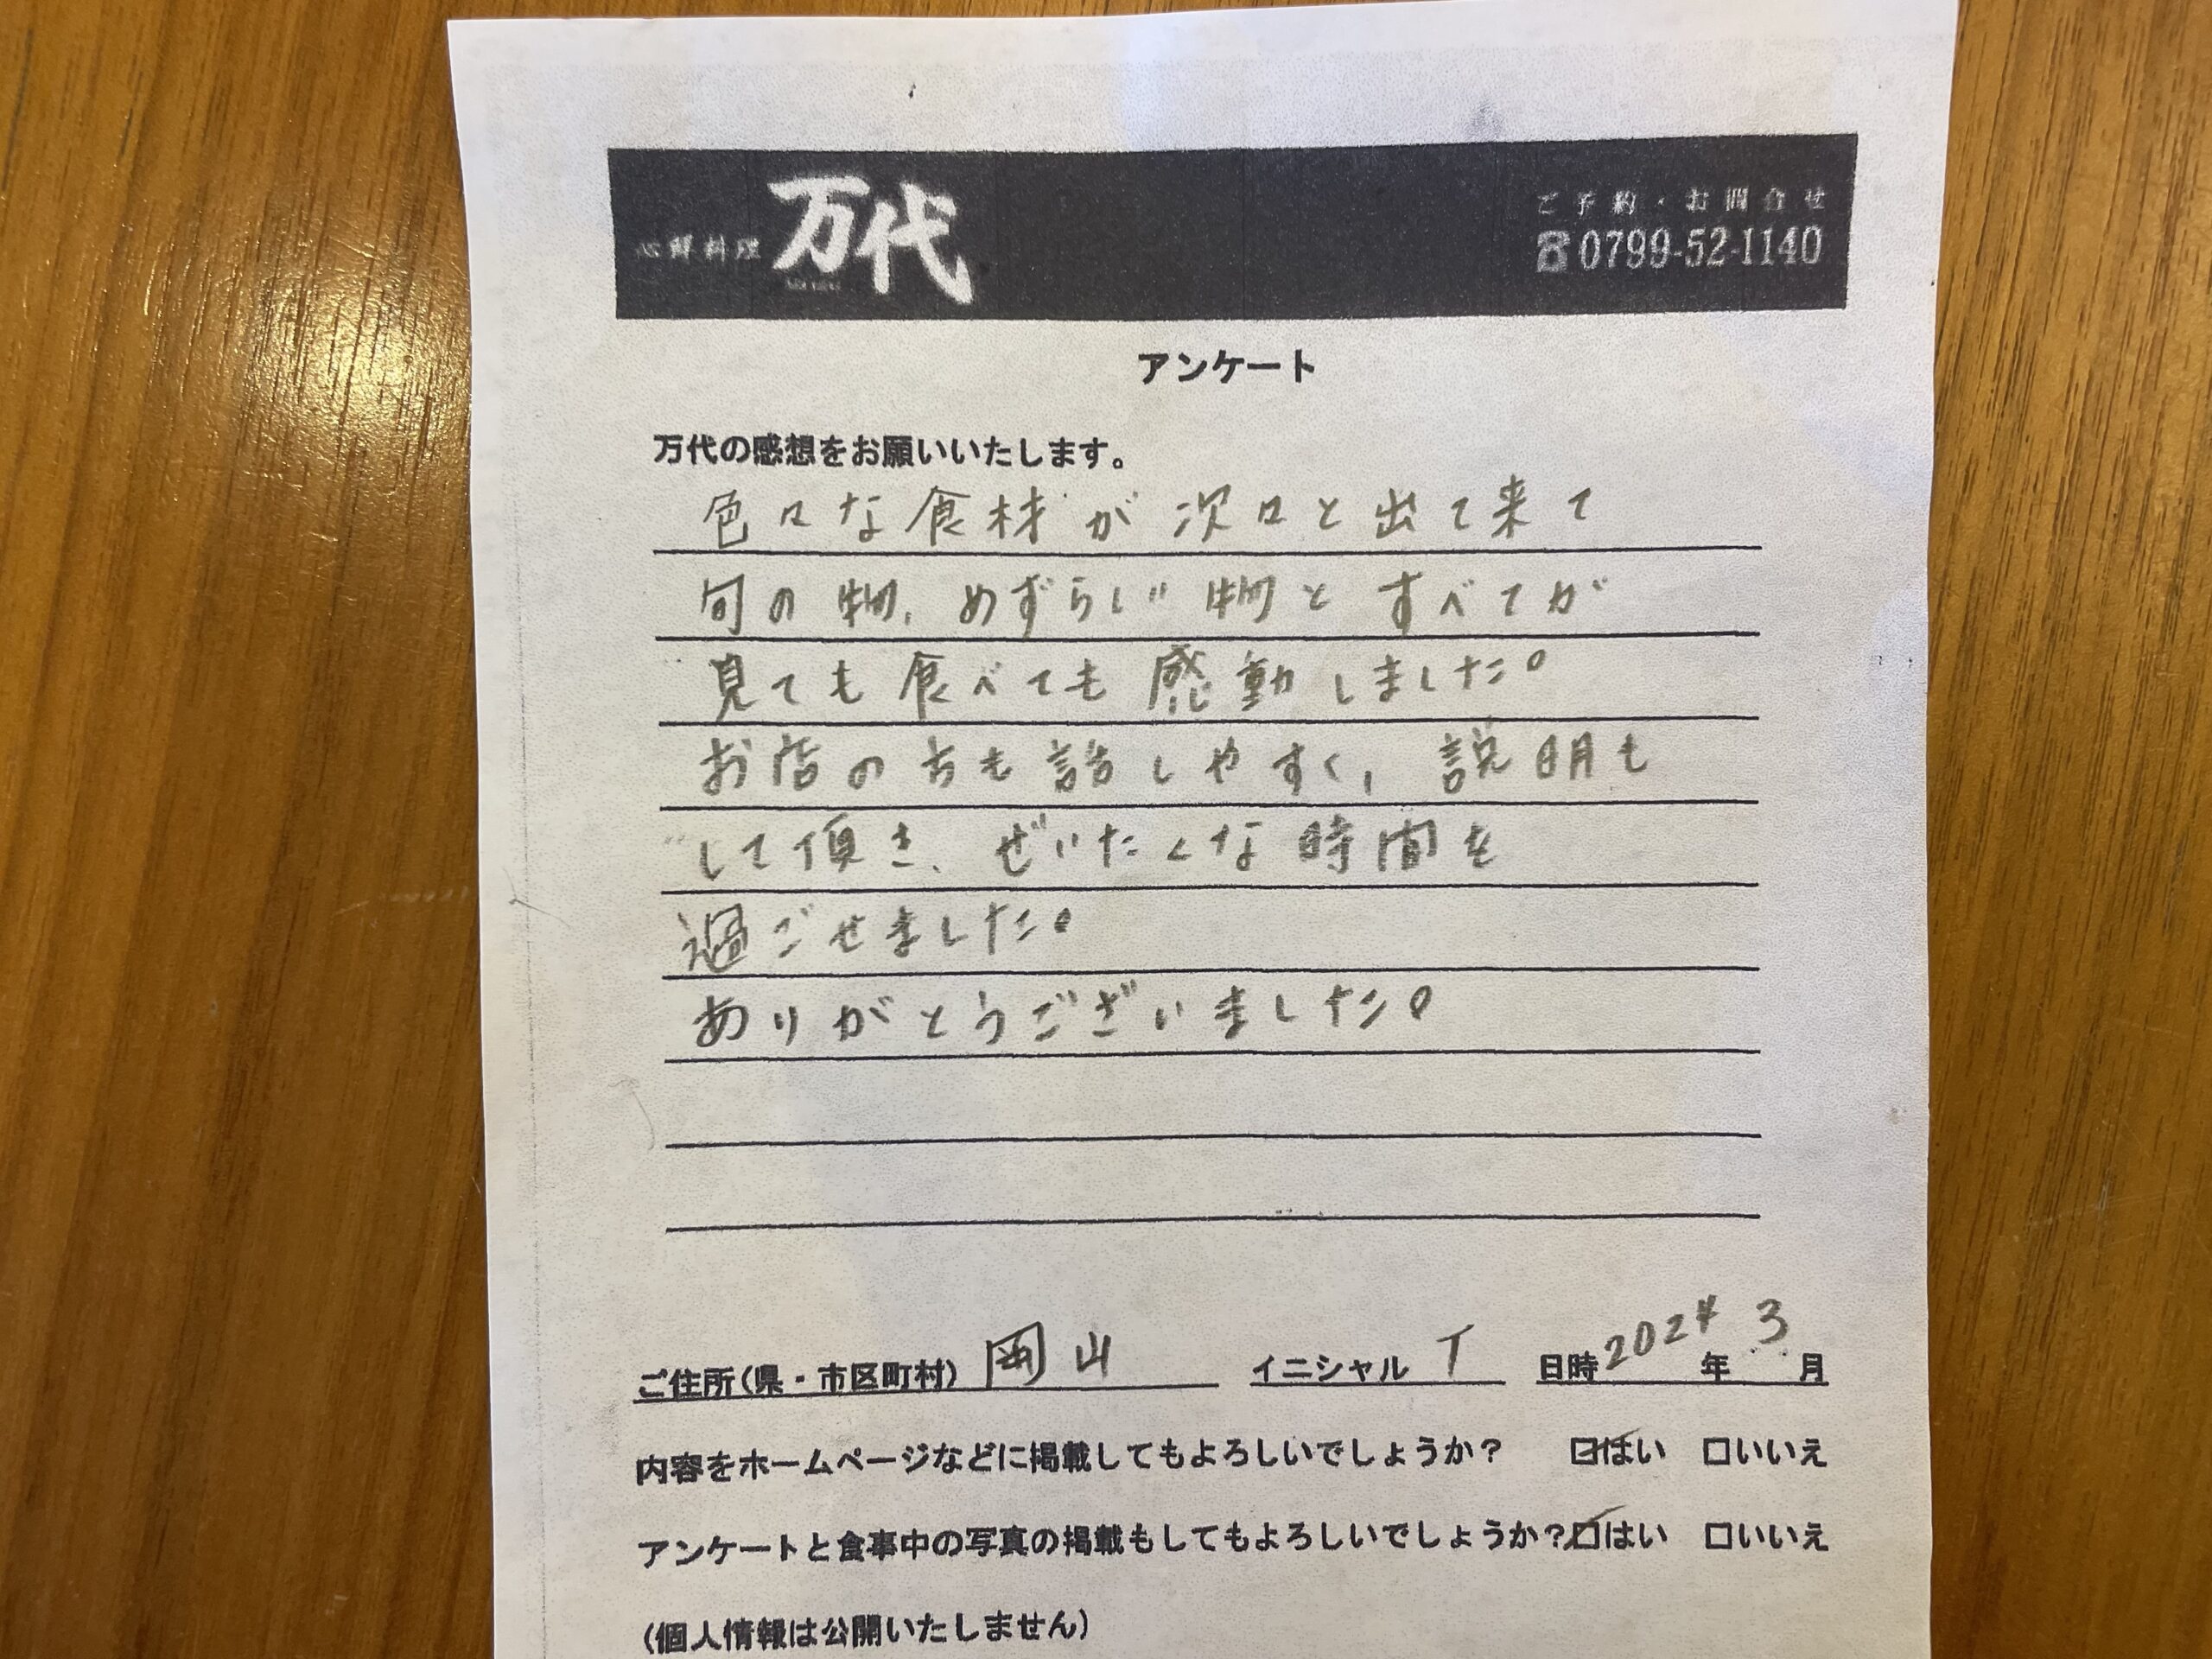 心鮮料理 万代
ご予約・お問合せ
☎0799-52-1140
アンケート
万代の感想をお願いいたします。
色々な食材が次々と出て来て
旬の物、めずらしい物とすべてが
見ても食べても感動しました。
お店の方も話しやすく、説明も
して頂き、ぜいたくな時間を
過ごせました。
ありがとうございました。
ご住所(県・市区町村) 岡山 イニシャル T 日時2024年3月
内容をホームページなどに掲載してもよろしいでしょうか? ☑はい □いいえ
アンケートと食事中の写真の掲載もしてもよろしいでしょうか?☑はい □いいえ
(個人情報は公開いたしません)